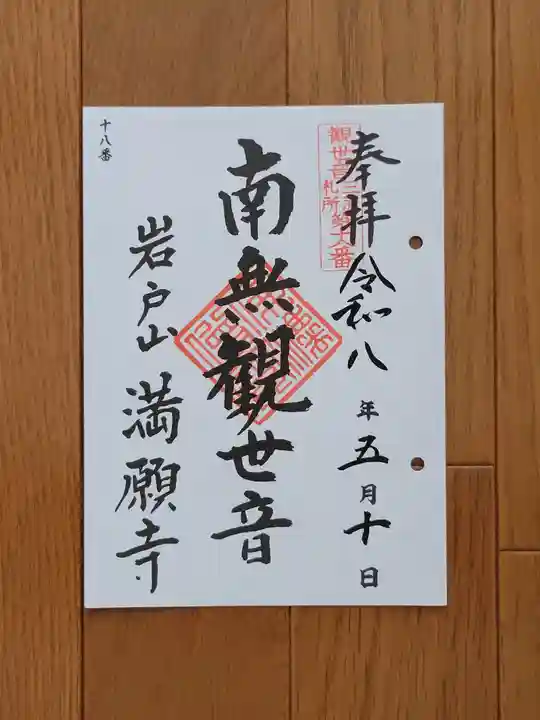 奉拝 令和八年五月十日
観世音
札所
南無観世音
岩戸山 満願寺
十八番